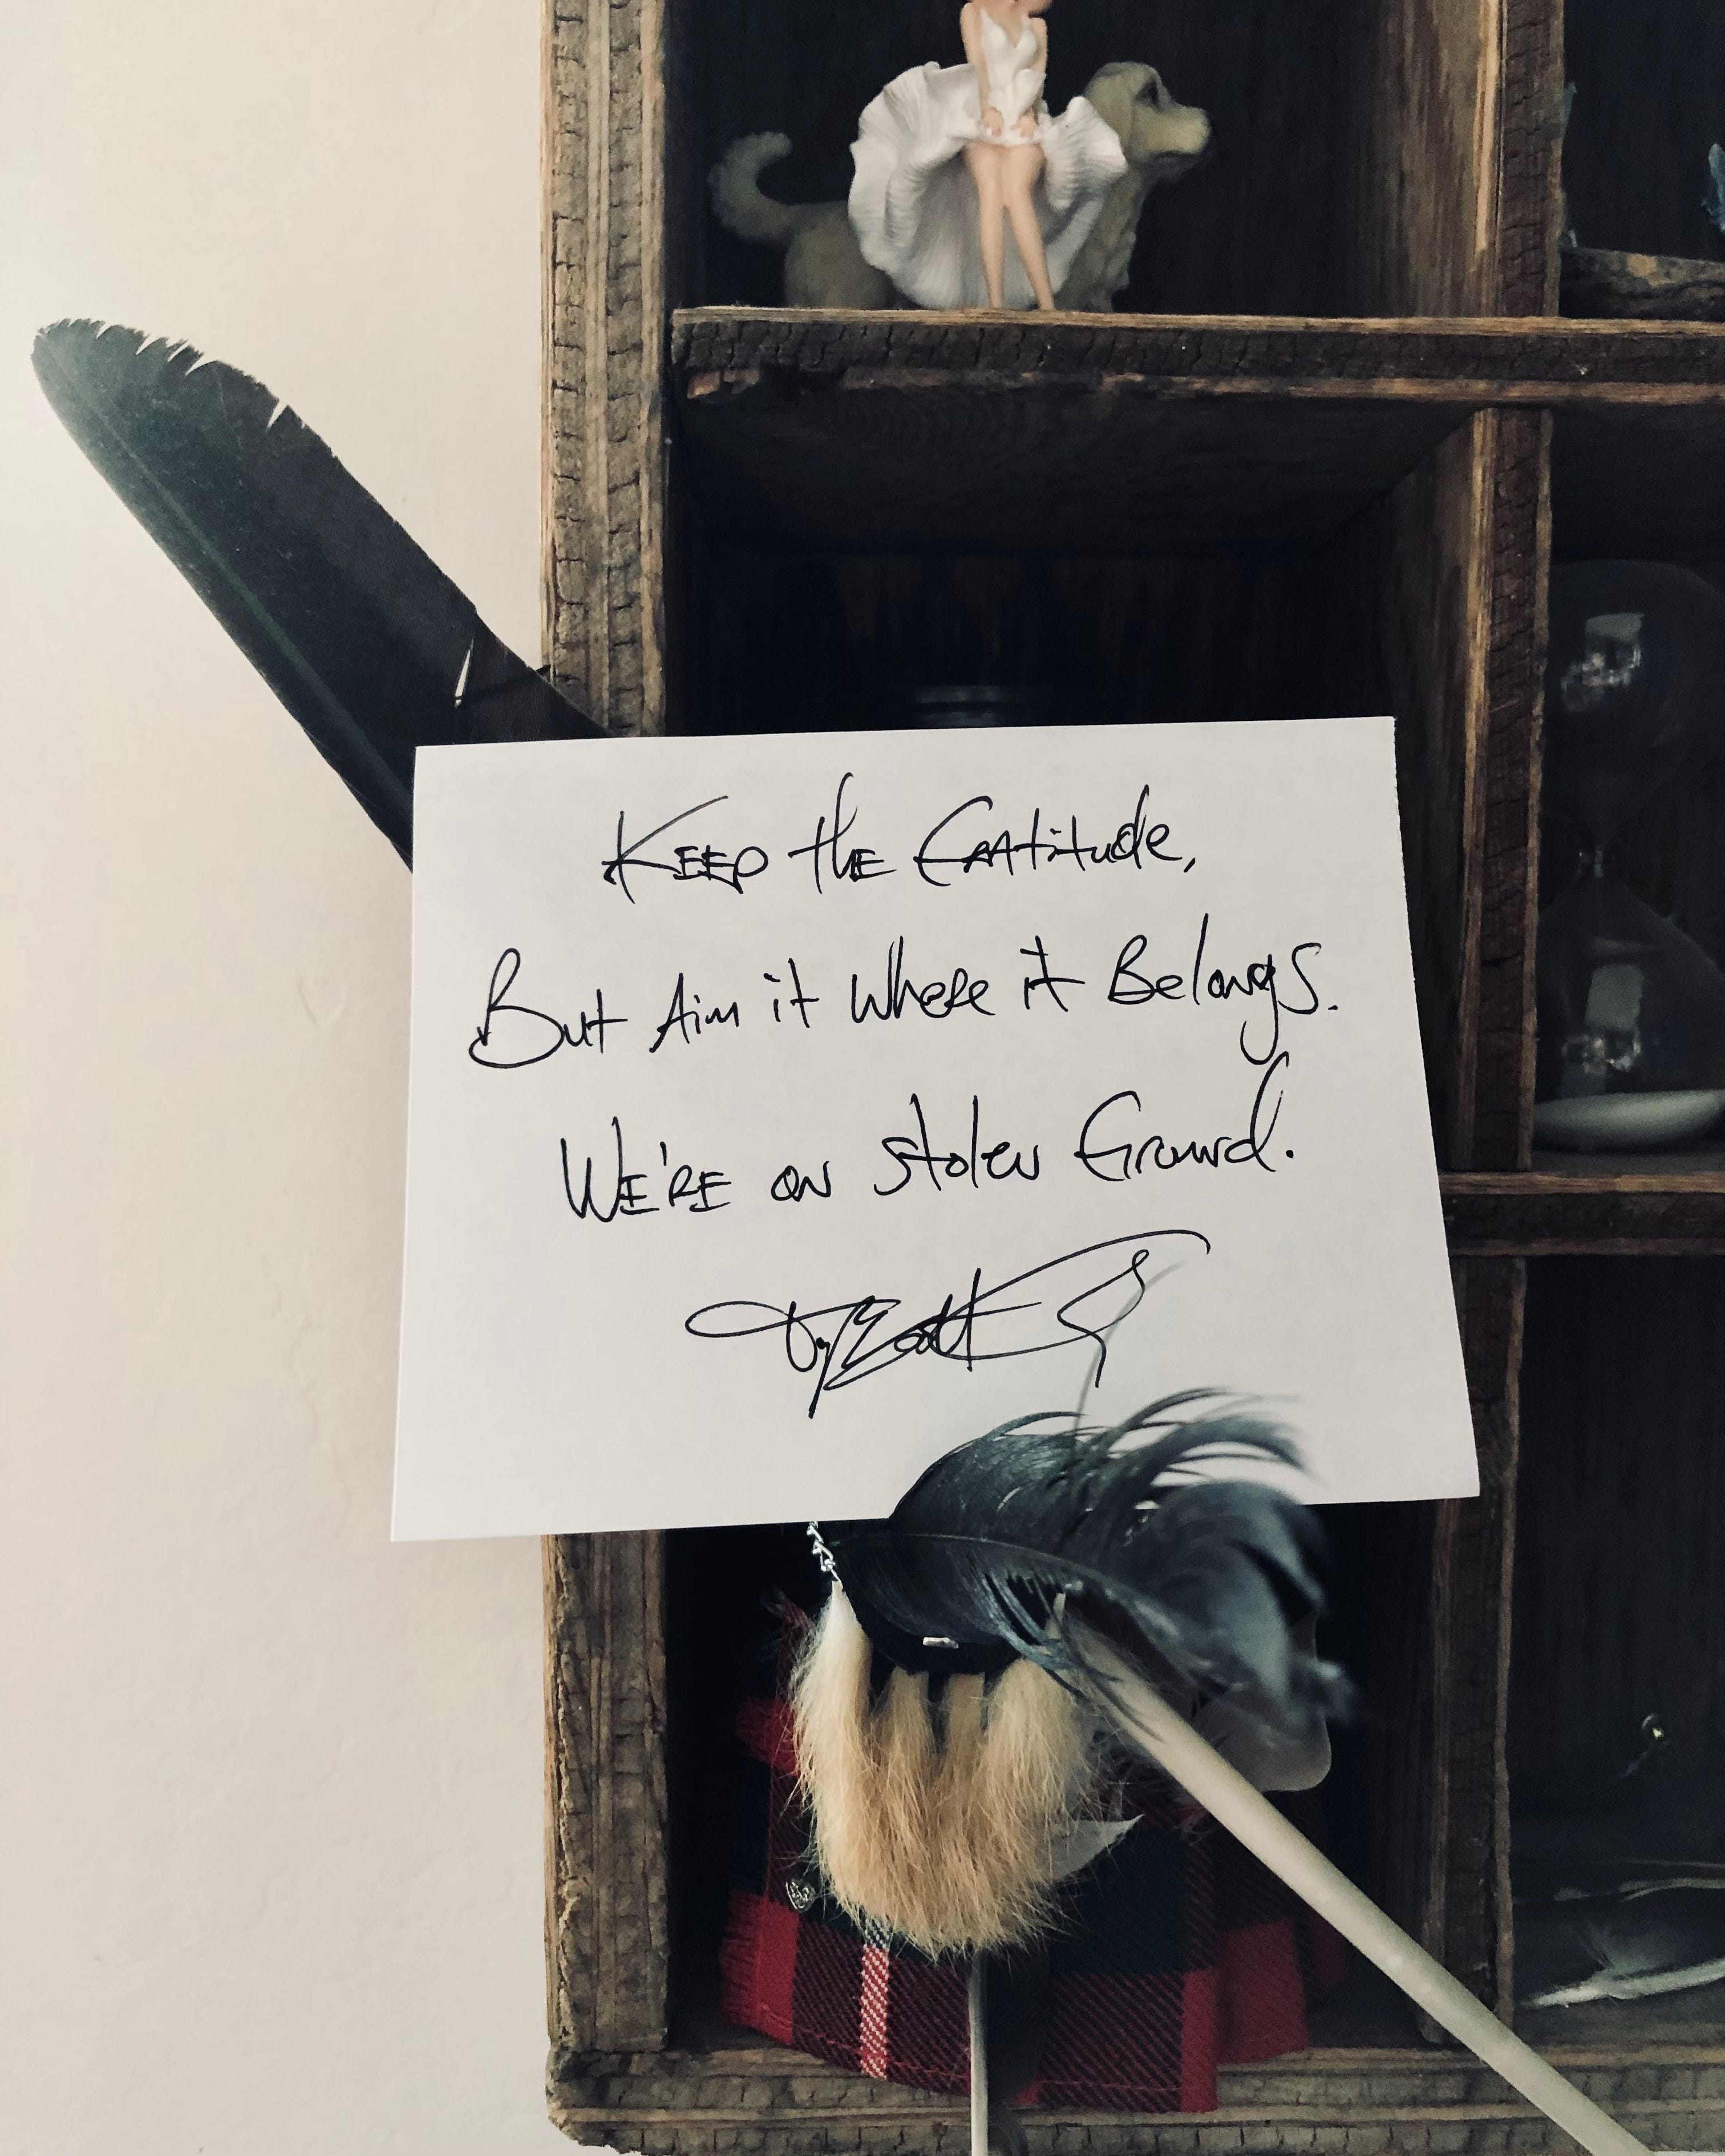 Keep the Gratitude,
But Aim it Where it Belongs.
We're on Stolen Ground.